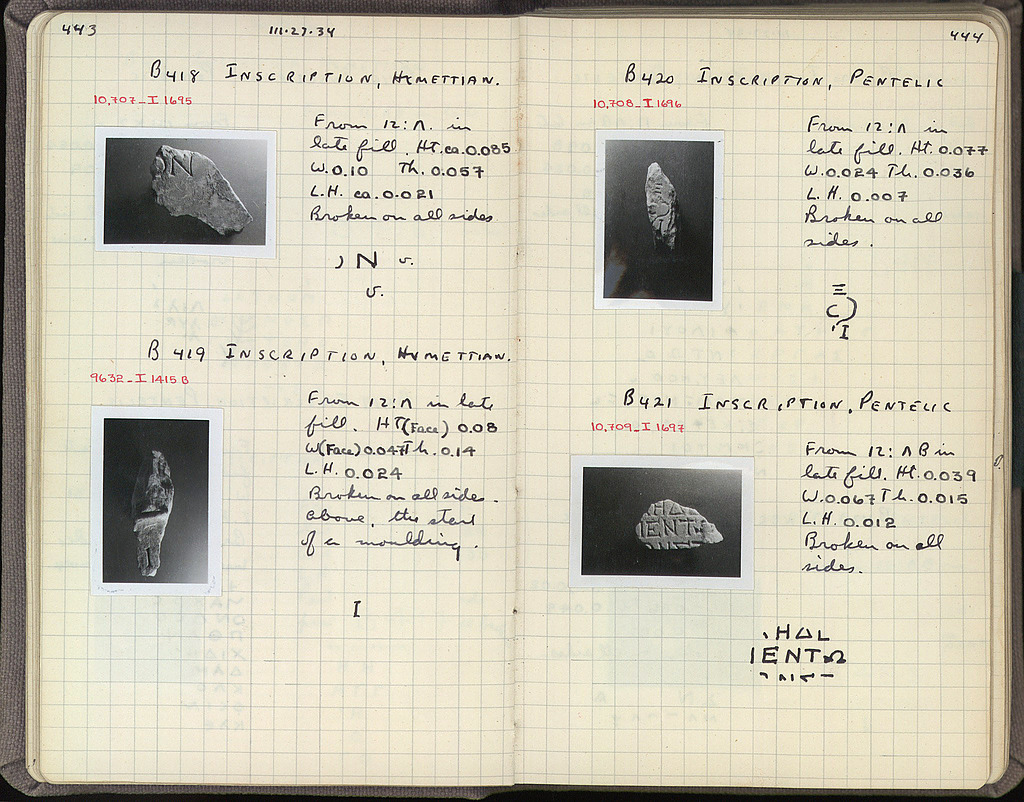 443
111·27·34
B418 INSCRIPTION, HYMETTIAN.
10,707_I 1695
From 12:Λ. in
late fill. Ht. ca. 0.085
W. 0.10 Th. 0.057
L.H. ca. 0.021
Broken on all sides
) N v.
v.
B 419 INSCRIPTION, HYMETTIAN.
9632_I 1415 B
From 12:Λ in late
fill. HT(Face) 0.08
W(Face) 0.047 Th. 0.14
L.H. 0.024
Broken on all sides.
above, the start
of a moulding.
I
444
B420 INSCRIPTION, PENTELIC
10,708_I 1696
From 12:Λ in
late fill. Ht. 0.077
W. 0.024 Th. 0.036
L.H. 0.007
Broken on all
sides.
Ξ
I
B421 INSCRIPTION, PENTELIC
10,709_I 1697
From 12: Λ B in
late fill. Ht. 0.039
W. 0.067 Th. 0.015
L.H. 0.012
Broken on all
sides.
HΔL
IENTΩ